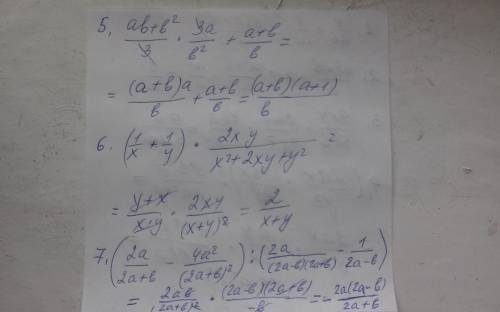 5, (ab+b²)/3 · 3a/b² + (a+b)/b =
= (a+b)a/b + (a+b)/b = (a+b)(a+1)/b
6. (1/x + 1/y) · 2xy/(x²+2xy+y²) =
= (y+x)/(x·y) · 2xy/(x+y)² = 2/(x+y)
7, (2a/(2a+b) - 4a²/(2a+b)²) : (2a/((2a-b)(2a+b)) - 1/(2a-b))
= 2ab/(2a+b)² · (2a-b)(2a+b)/(-b) = - 2a(2a-b)/(2a+b)